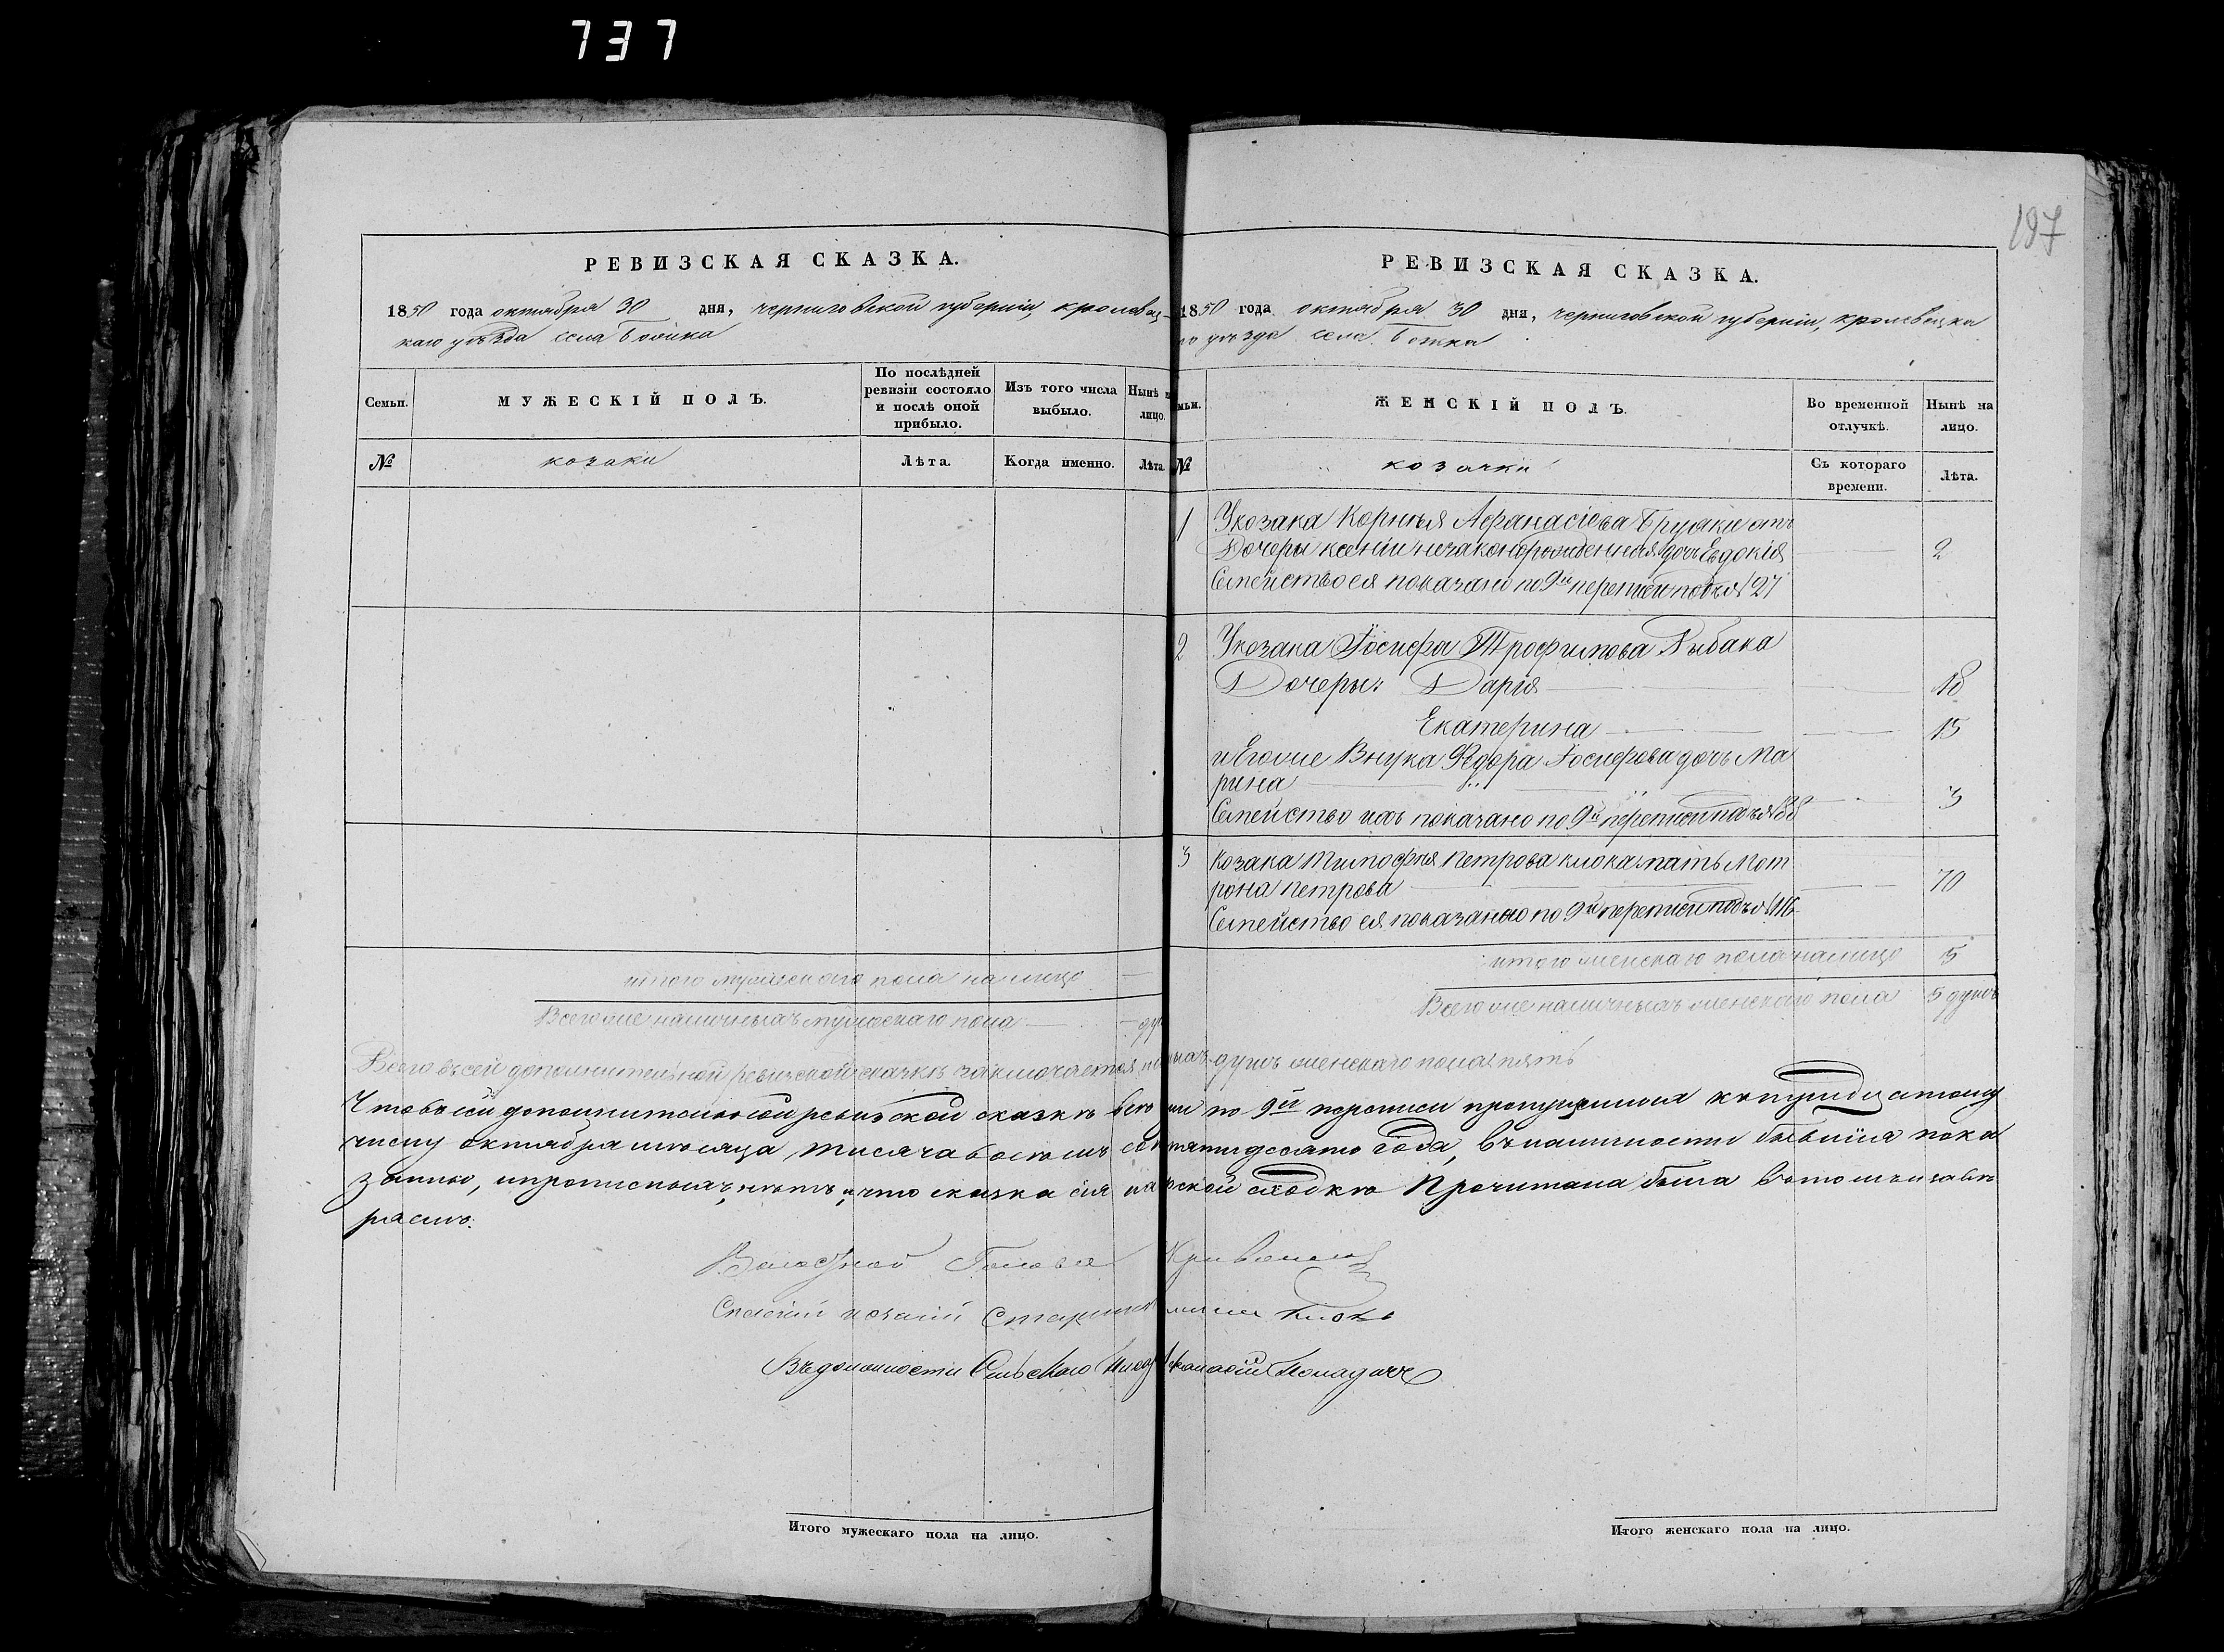 737
197
РЕВИЗСКАЯ СКАЗКА.
1850 года октября 30 дня, черниговской губерніи, кролевец-
каго уѣзда села
Семьи. МУЖЕСКІЙ ПОЛЪ. По послѣдней ревизіи состояло и послѣ оной прибыло. Изъ того числа выбыло. Нынѣ на лицо.
№ козаки Лѣта. Когда именно. Лѣта.
итого мужескаго пола налицо —
Всего же наличныхъ мужескаго пола —
РЕВИЗСКАЯ СКАЗКА.
1850 года октября 30 дня, черниговской губерніи, кролевецка
го уѣзда села
ЖЕНСКІЙ ПОЛЪ. Во временной отлучкѣ. Нынѣ на лицо.
№ козачки Съ котораго времени. Лѣта.
1 У козака Корнѣя Афанасіева отъ
Дочеры ксеніи незаконорожденная дочь Евдокія 2
Семейство ея показано по 9й переписи подъ № 27
2 У козака Іосифа Трофимова Рыбака
Дочеры: Дарія 18
Екатерина 15
и Егоже Внука Федора Іосифова дочь Ма
рина 3
Семейство ихъ показано по 9й переписи подъ № 38
3 козака Тимофѣя Петрова клюка мать Мот
рона Петрова 70
Семейство ея показанно по 9й переписи подъ № 116
итого женскаго пола налицо 5
Всего же наличныхъ женскаго пола 5 душъ
Всего въ сей дополнительной ревизской сказкѣ заключается душъ женскаго пола пять
Что въ сей дополнительной ревизской сказкѣ всѣ по 9й переписи къ тридцатому
числу октября мѣсяца тисяча восемъ сотъ пятидесято года, въ наличности бывшія пока
занно, и прописныхъ нѣтъ, и что сказка сія на сходкѣ Прочитана была
Волостной Голова
Сельскій козачій Старшина клюка
Въ должности Сельскаго
Итого мужескаго пола на лицо.
Итого женскаго пола на лицо.